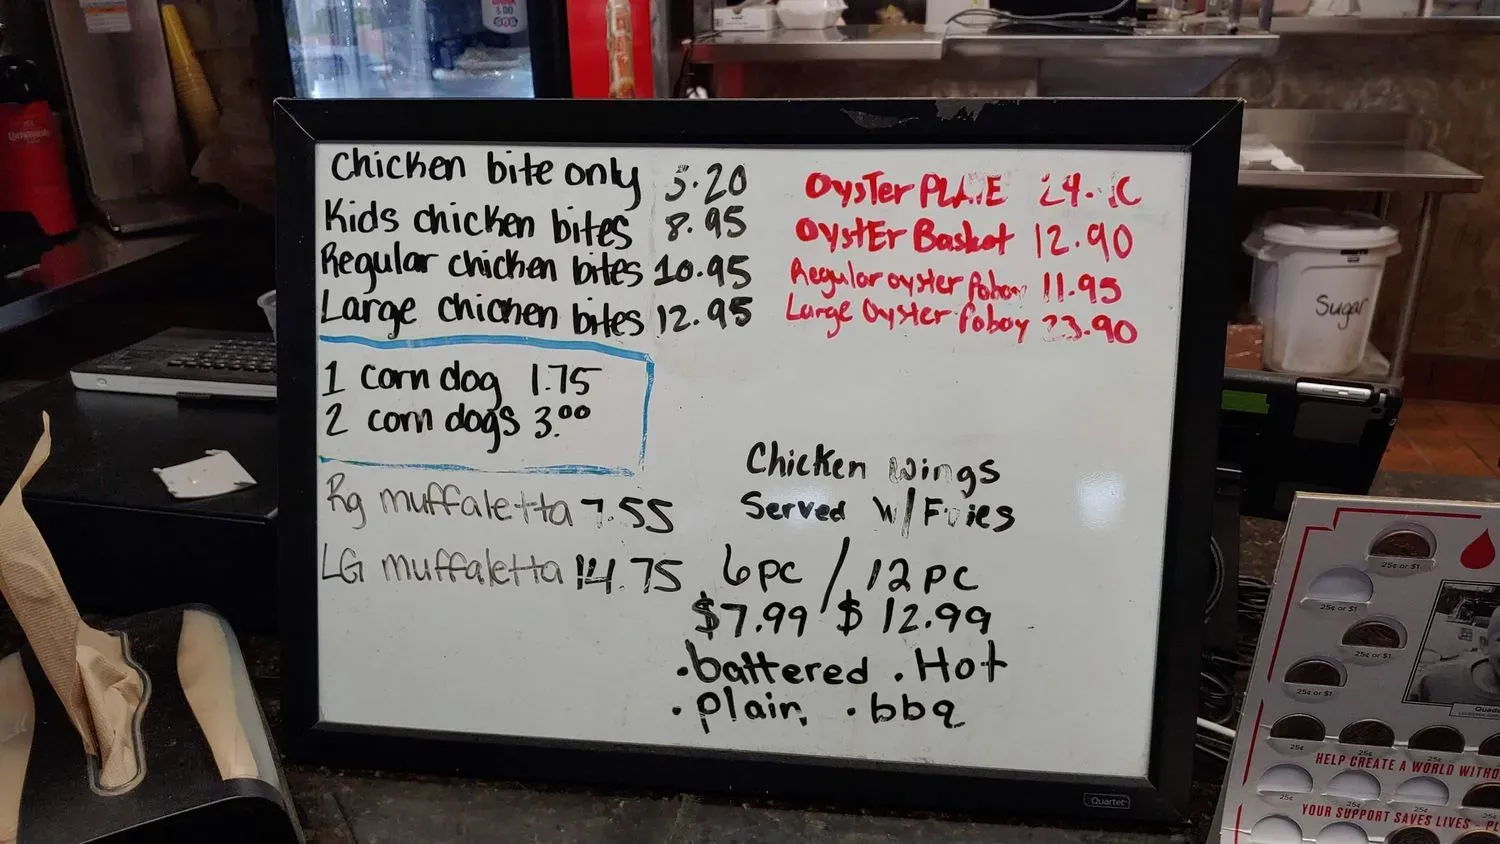 Chicken bite only 5.20
Kids chicken bites 8.95
Regular chicken bites 10.95
Large chicken bites 12.95
1 corn dog 1.75
2 corn dogs 3.00
Rg muffaletta 7.55
LG muffaletta 14.75
OysTer PLATE 24.
OystEr Basket 12.90
Regular oyster Poboy 11.95
Large Oyster Poboy 23.90
Chicken wings
Served w/Fries
6pc / 12pc
$7.99 $12.99
.battered .Hot
.plain .bbq
Quartet
Sugar
25¢ or $1
25¢ or $1
25¢ or $1
25¢ or $1
25¢
25¢
25¢
HELP CREATE A WORLD WITHO
25¢
25¢
25¢
YOUR SUPPORT SAVES LIVES - PL